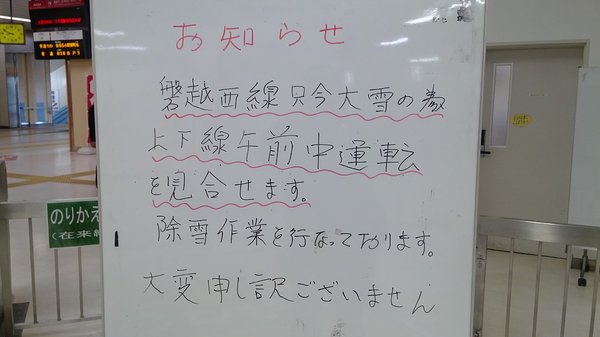 お知らせ
磐越西線只今大雪の為
上下線午前中運転
を見合せます。
除雪作業を行なっております。
大変申し訳ございません
のりかえ
(在来線